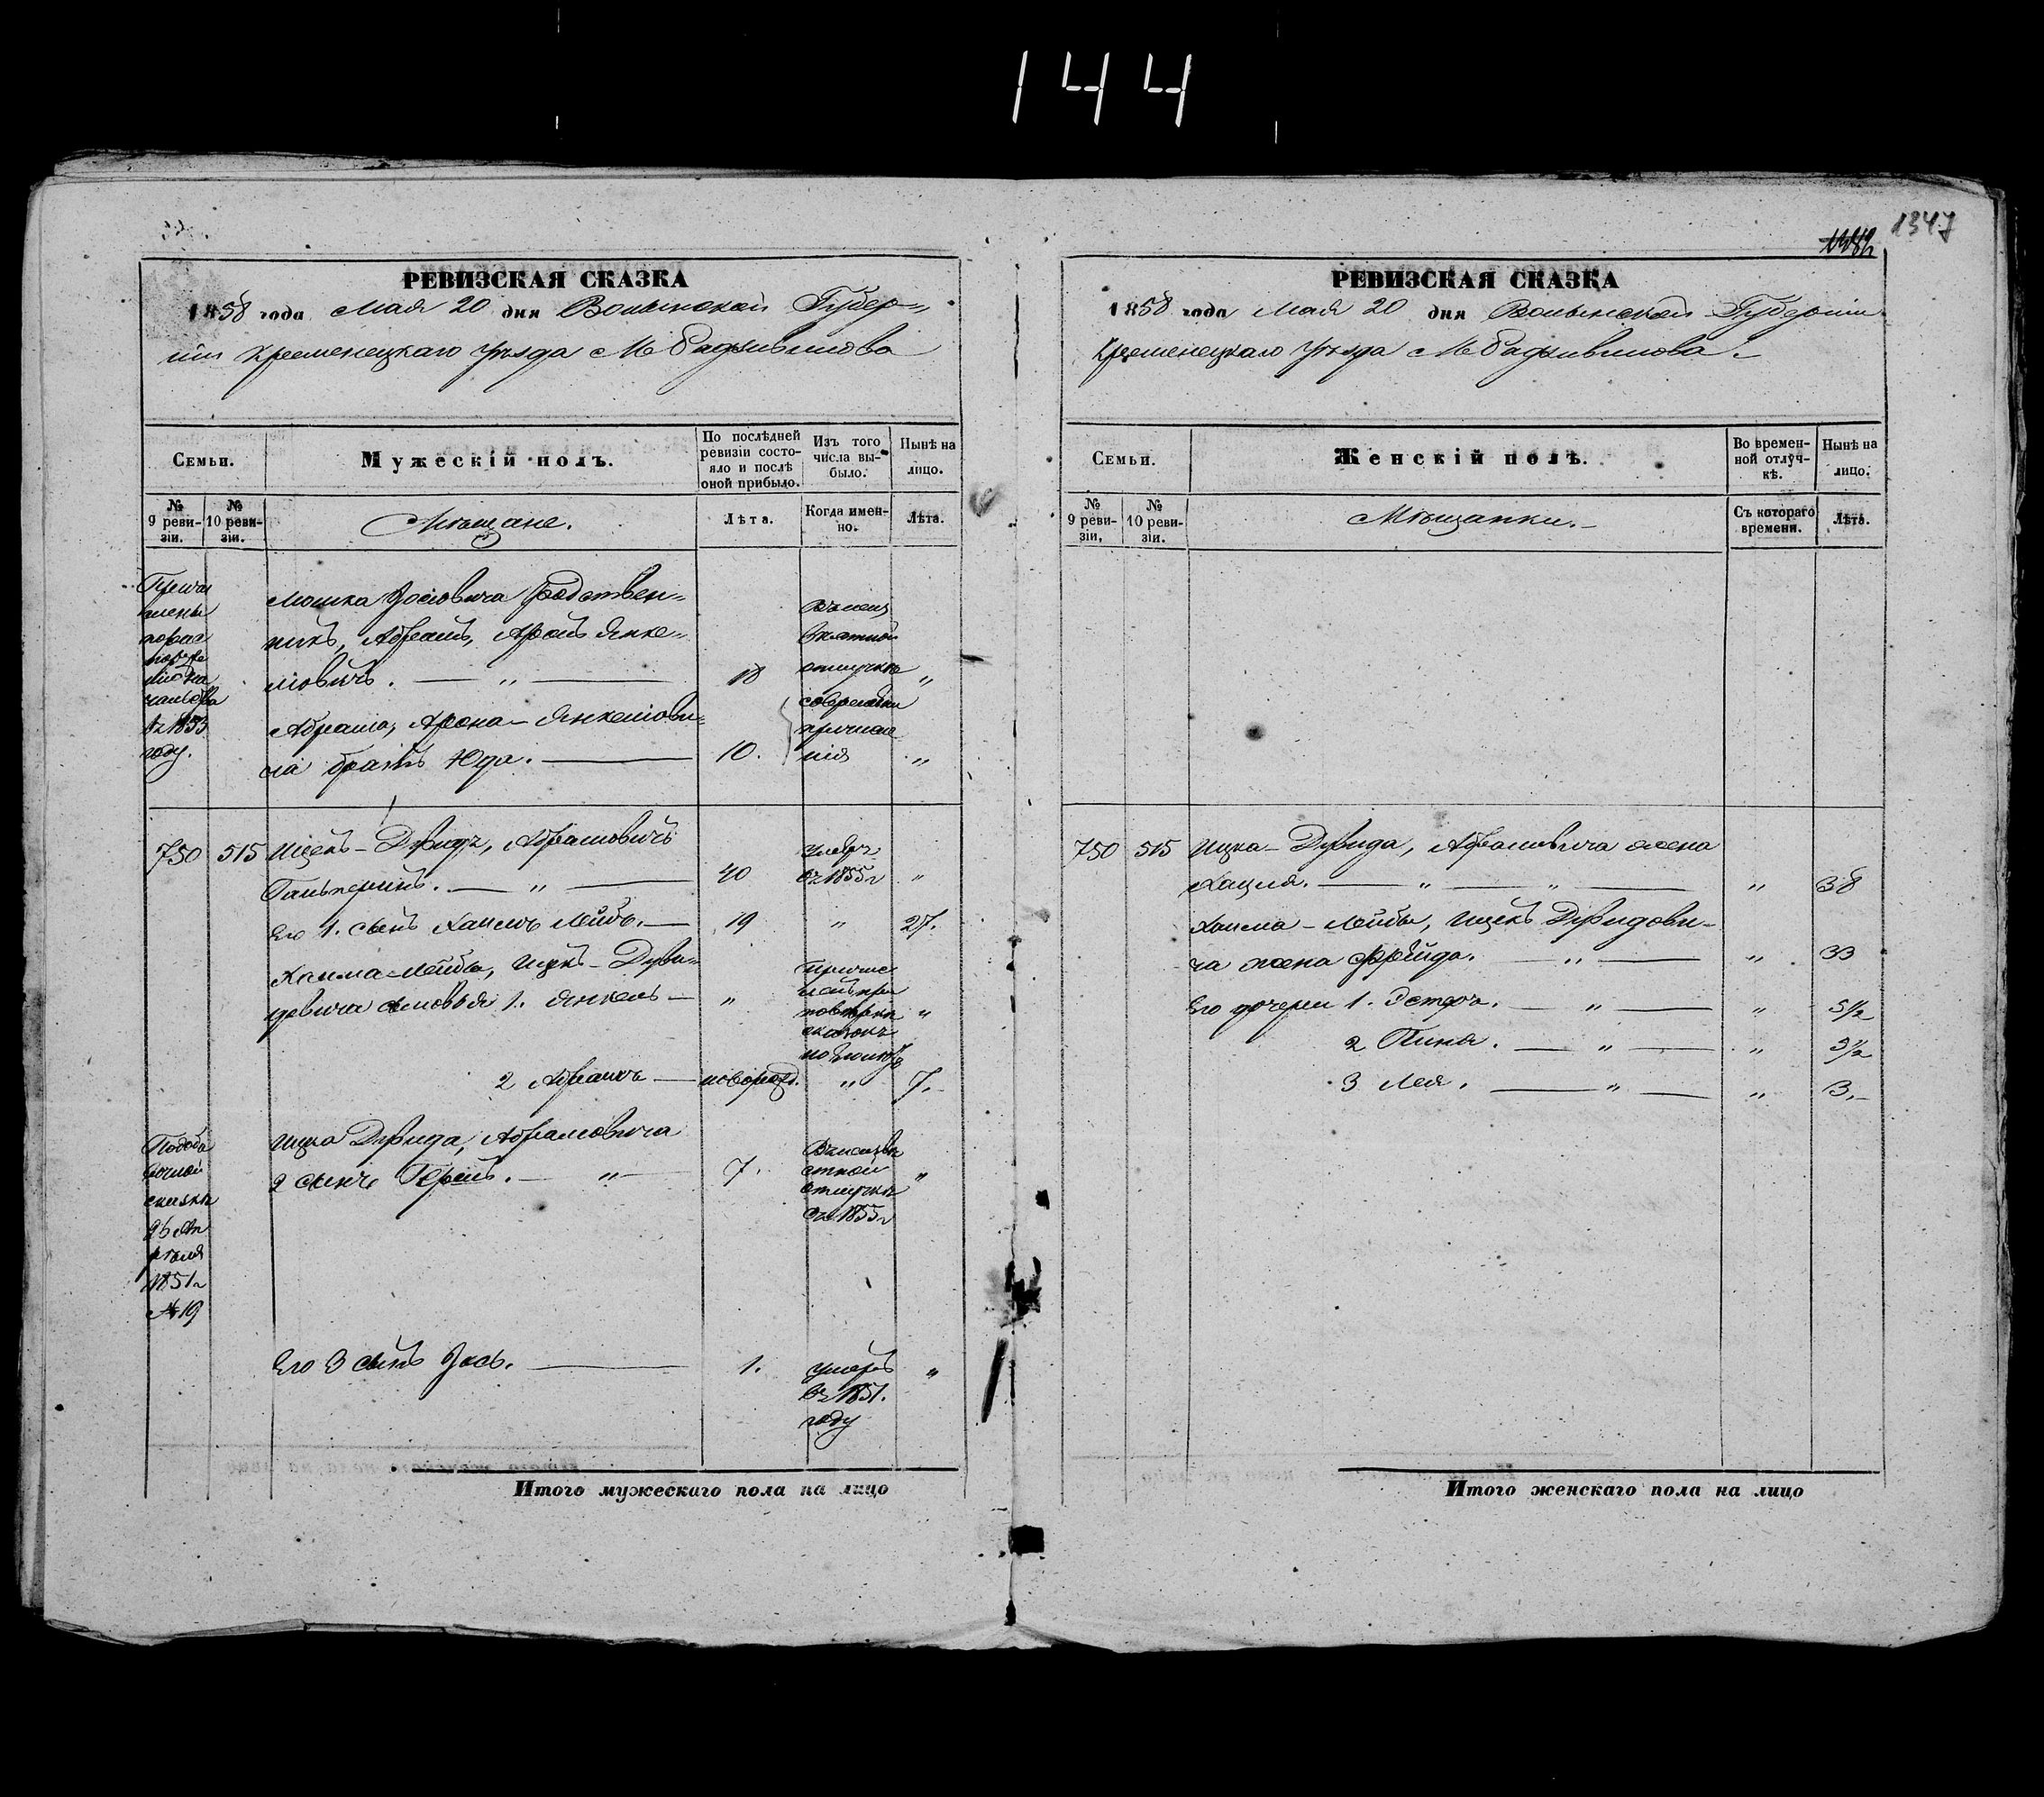 144
1347
РЕВИЗСКАЯ СКАЗКА
1858 года Мая 20 дня Волынской Губер-
ніи Кременецкаго Уѣзда М Радзивилова
Семьи.
Мужескій полъ.
По послѣдней ревизіи состояло и послѣ оной прибыло.
Изъ того числа выбыло.
Нынѣ на лицо.
№ 9 ревизіи.
№ 10 ревизіи.
Мѣщане.
Лѣта.
Когда именно.
Лѣта.
Мошка Іосіовича родствен-
никъ, Абрамъ, Аронъ Янке-
ліовичъ. — " — 18 "
въ 1853
году.
Абрама, Арона - Янкеліови-
ча братъ Юда. — 10. "
750 515 Ицекъ - Дувидъ, Абрамовичъ
Гальперинъ. — " — 40 умеръ въ 1855 г "
Его 1. сынъ Хаимъ Лейбъ. — 19 " 27.
Хаима-Лейбы, Ицекъ - Дуви-
довича сыновья 1. Янкель — " "
2 Абрамъ — новорожд. " 7.
Ицка Дувида, Абрамовича
2 сынъ Герш. — " — 7. "
отлучкѣ
съ 1855 г
сказкѣ
26 Ап
рѣля
1851 г
№ 19
Его 3 сынъ Іось. — 1. умеръ "
въ 1851.
году
Итого мужескаго пола на лицо
РЕВИЗСКАЯ СКАЗКА
1858 года Мая 20 дня Волынской Губерніи
Кременецкаго Уѣзда М Радзивилова.
Семьи.
Женскій полъ.
Во временной отлучкѣ.
Нынѣ на лицо.
№ 9 ревизіи,
№ 10 ревизіи.
Мѣщанки.
Съ котораго времени.
Лѣта.
750 515 Ицка - Дувида, Абрамовича жена
Хацля. — " — " — " 38
Хаима - Лейбы, Ицекъ Дувидови-
ча жена Фрейда. — " — " 33
Его дочери 1. Эстеръ. — " — " 5½
2 Пиня. — " — " 3½
3 Лея. — " — " 3.
Итого женскаго пола на лицо